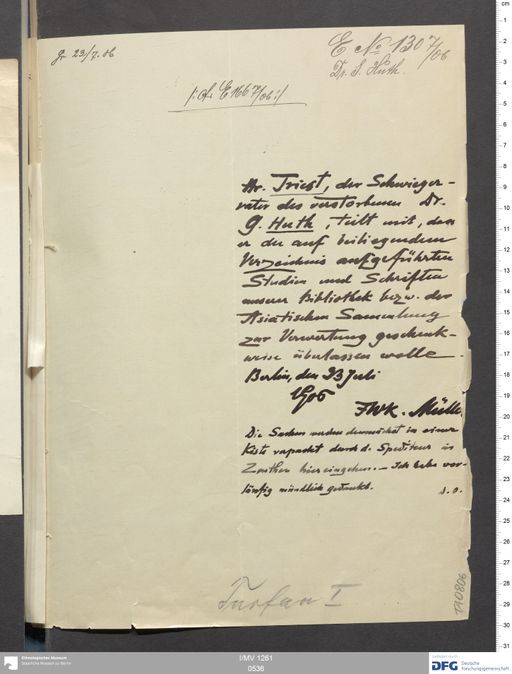 gr 23/7. 06
E No 1307/06
Dr. G. Huth.
/: cf. E 1667/06 :/
Hr. Triest, der Schwieger-
vater des verstorbenen Dr.
G. Huth, teilt mit, dass
er die auf beiliegendem
Verzeichnis aufgeführten
Studien und Schriften
unserer Bibliothek bezw. der
Asiatischen Sammlung
zur Verwertung geschenk-
weise überlassen wolle.
Berlin, den 23 Juli
1906
FWK. Müller
Die Sachen werden demnächst in einer
Kiste verpackt durch d. Spediteur in
Zeuthen hier eingehen. - Ich habe vor-
läufig mündlich gedankt.
d. O.
Turfan I
TA0806
I/MV 1261
0536
Ethnologisches Museum
Staatliche Museen zu Berlin
gefördert durch
DFG Deutsche
Forschungsgemeinschaft
cm
1
2
3
4
5
6
7
8
9
10
11
12
13
14
15
16
17
18
19
20
21
22
23
24
25
26
27
28
29
30
31